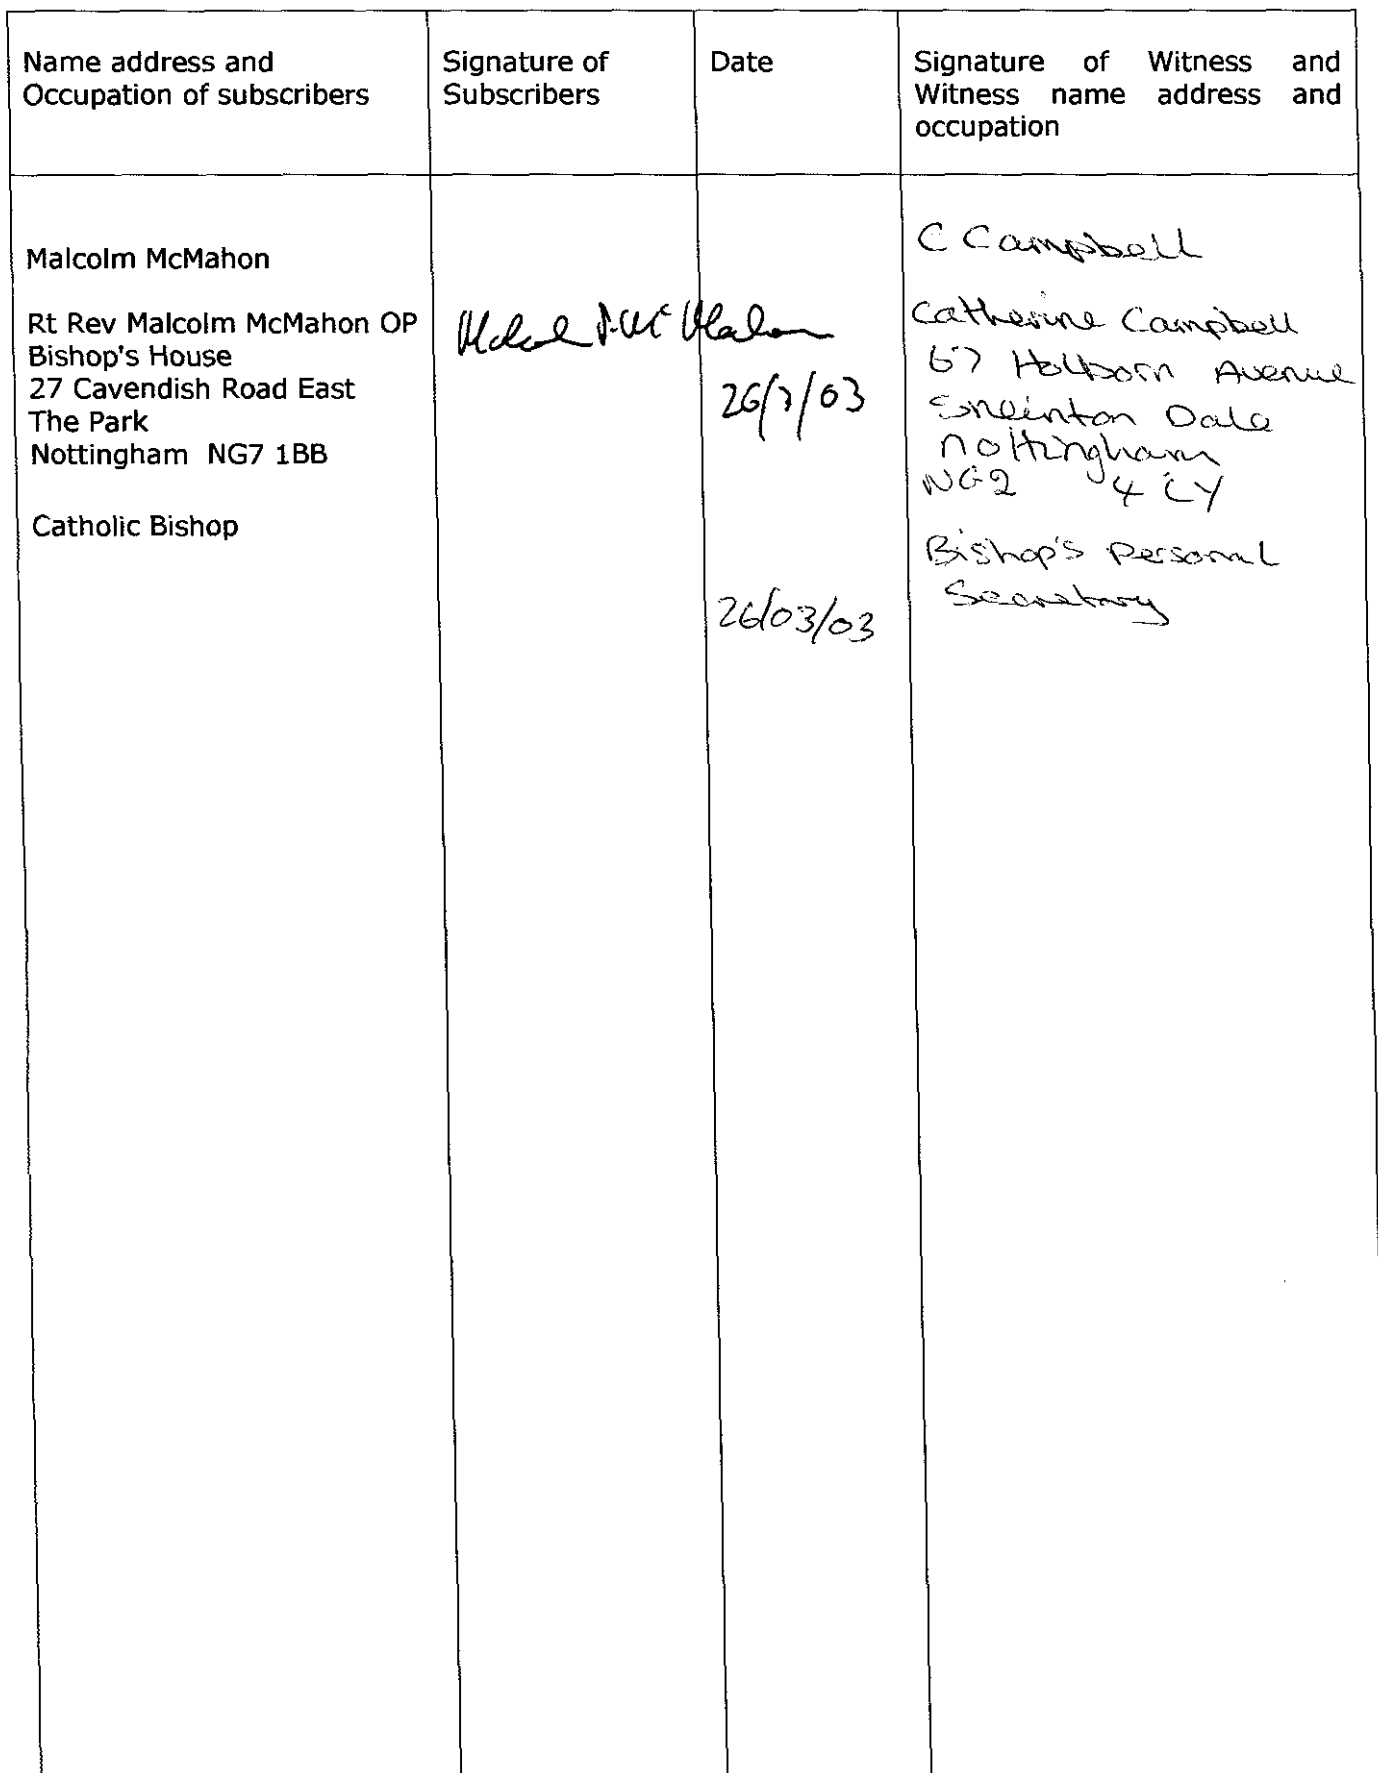 Name address and
Occupation of subscribers
Signature of
Subscribers
Date
Signature of Witness and
Witness name address and
occupation
Malcolm McMahon
Rt Rev Malcolm McMahon OP
Bishop's House
27 Cavendish Road East
The Park
Nottingham NG7 1BB
Catholic Bishop
McMahon
26/3/03
26/03/03
C Campbell
Catherine Campbell
67 Holborn Avenue
Sneinton Dale
Nottingham
NG2 4LY
Bishop's Personal
Secretary